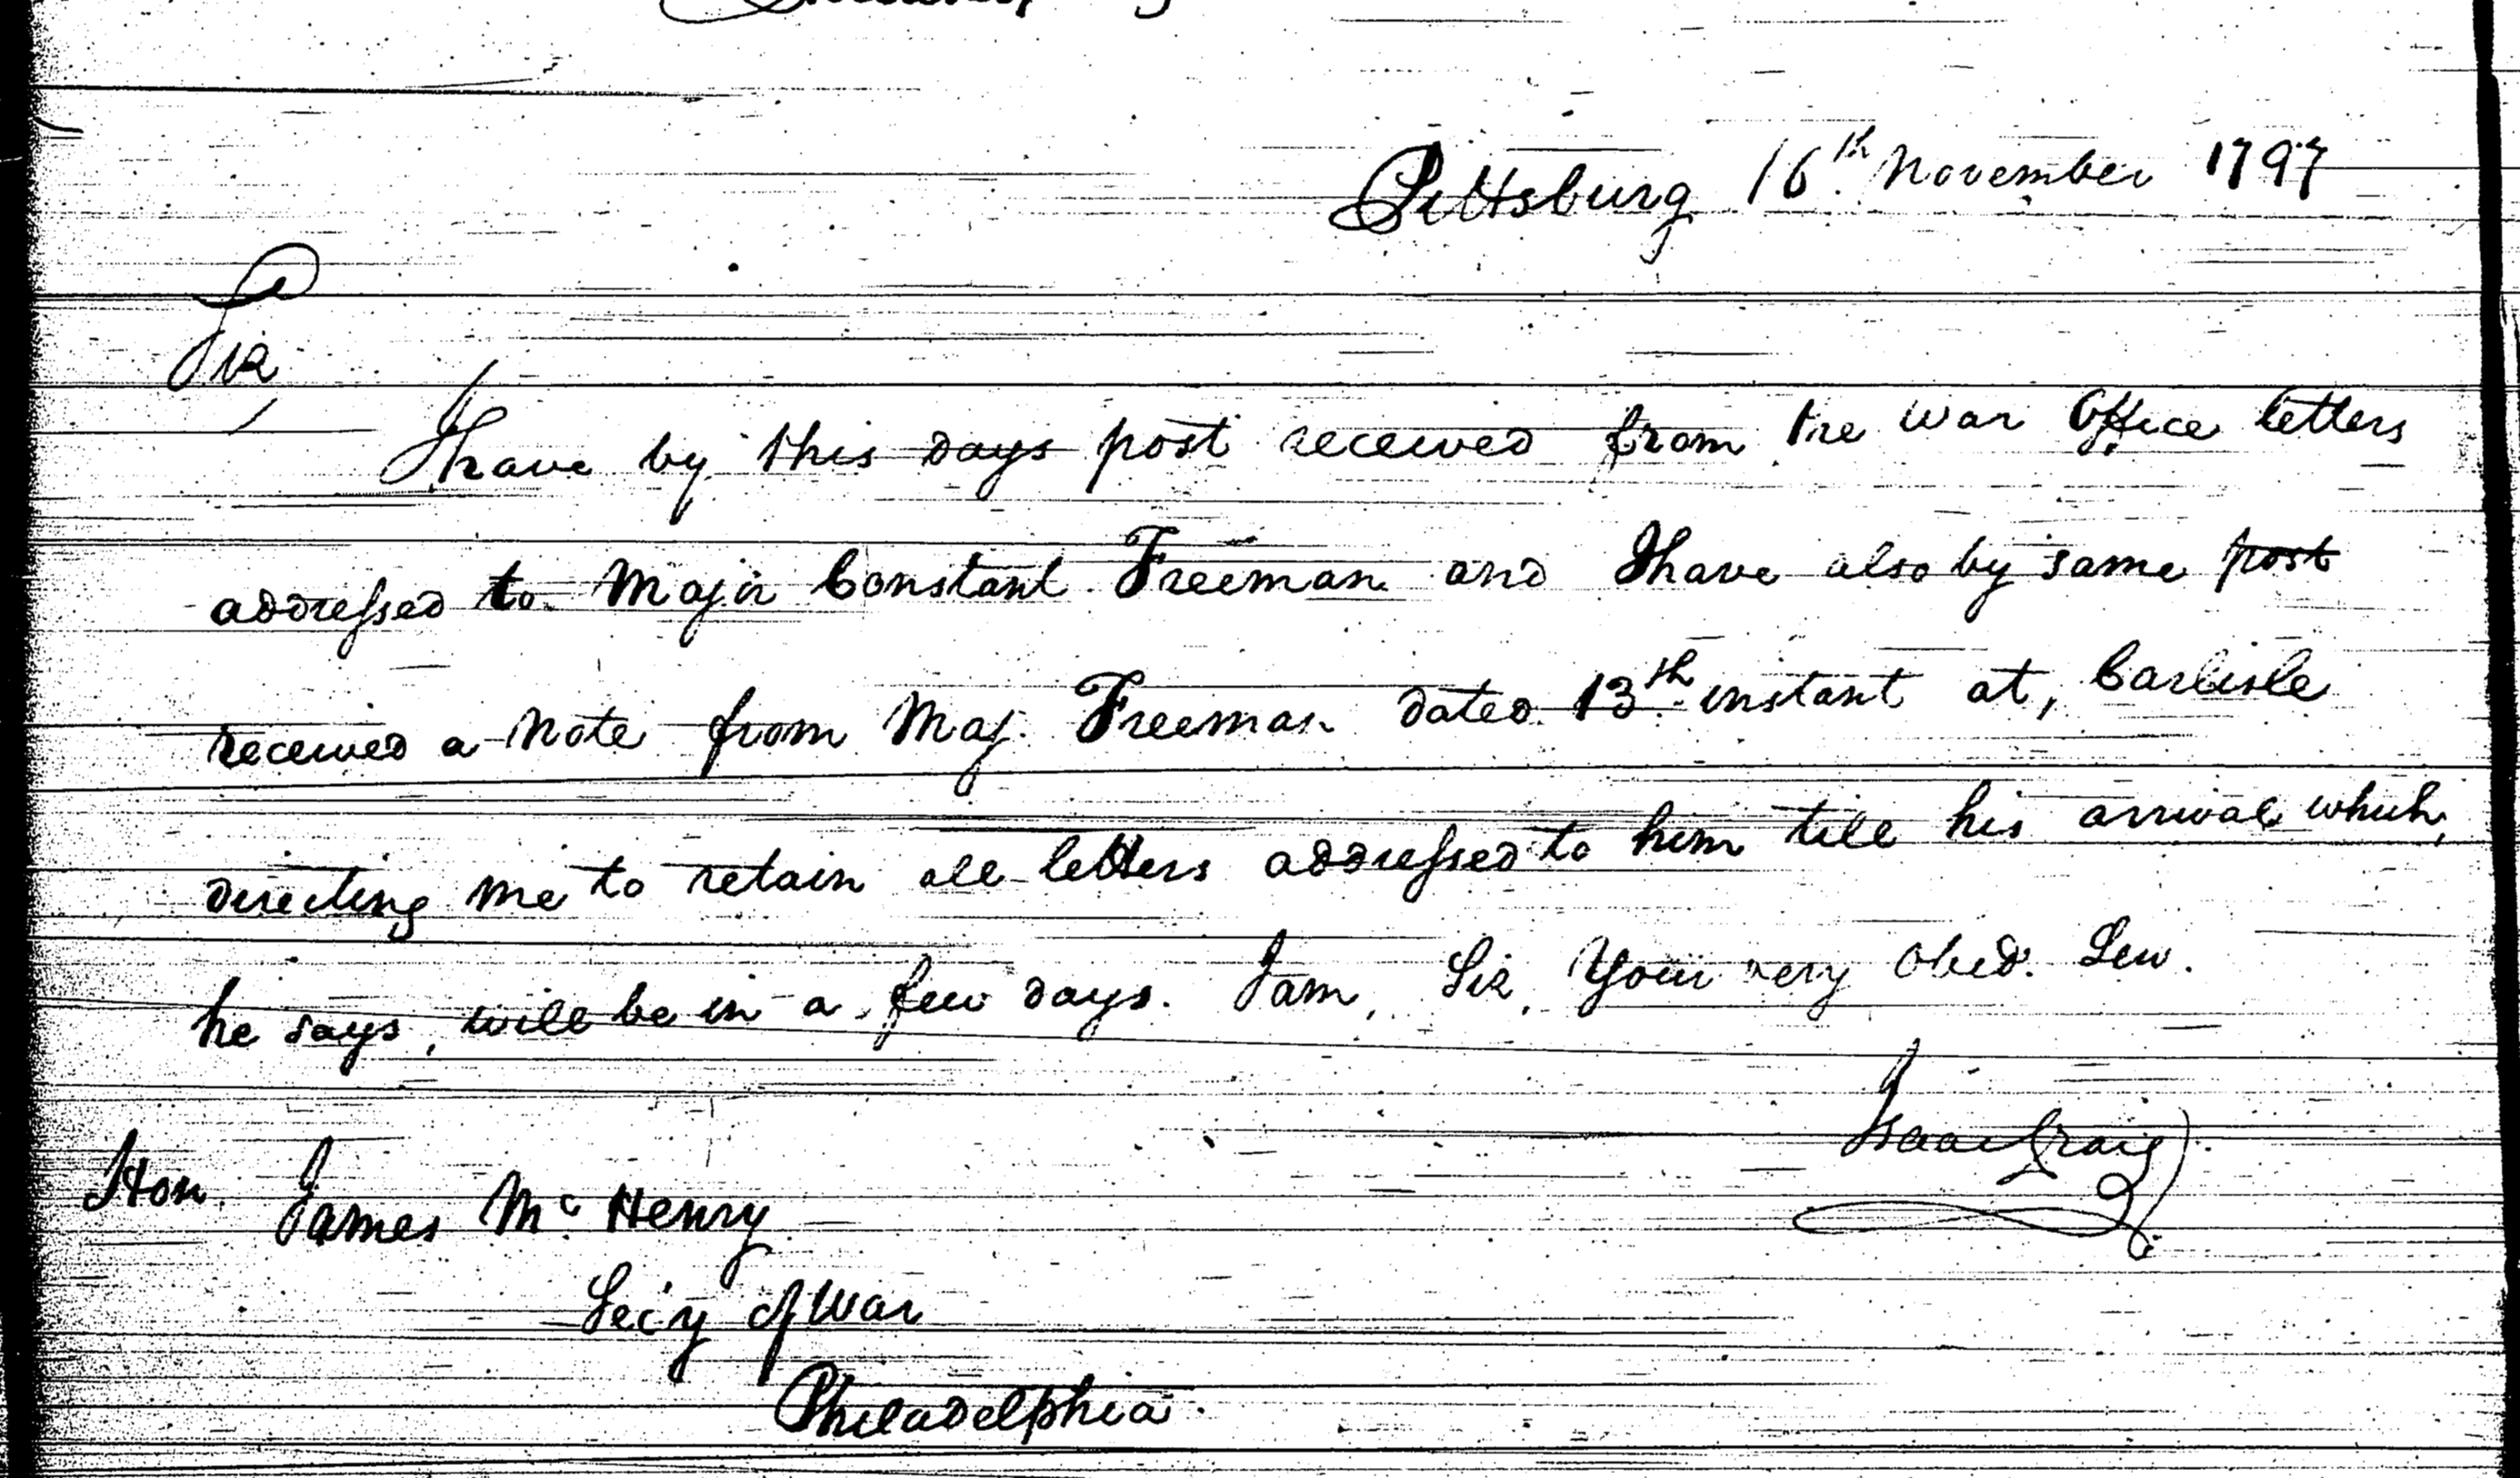 Pittsburg 16th November 1797
Sir
I have by this days post received from the War Office letters
addressed to Major Constant Freeman and I have also by same post
received a Note from Maj. Freeman dated 13th instant at, Carlisle
directing me to retain all letters addressed to him till his arrival which,
he says, will be in a few days. I am, Sir, Your very Obed. Serv.
Isaac Craig
Hon. James McHenry
Sec'y of War
Philadelphia.